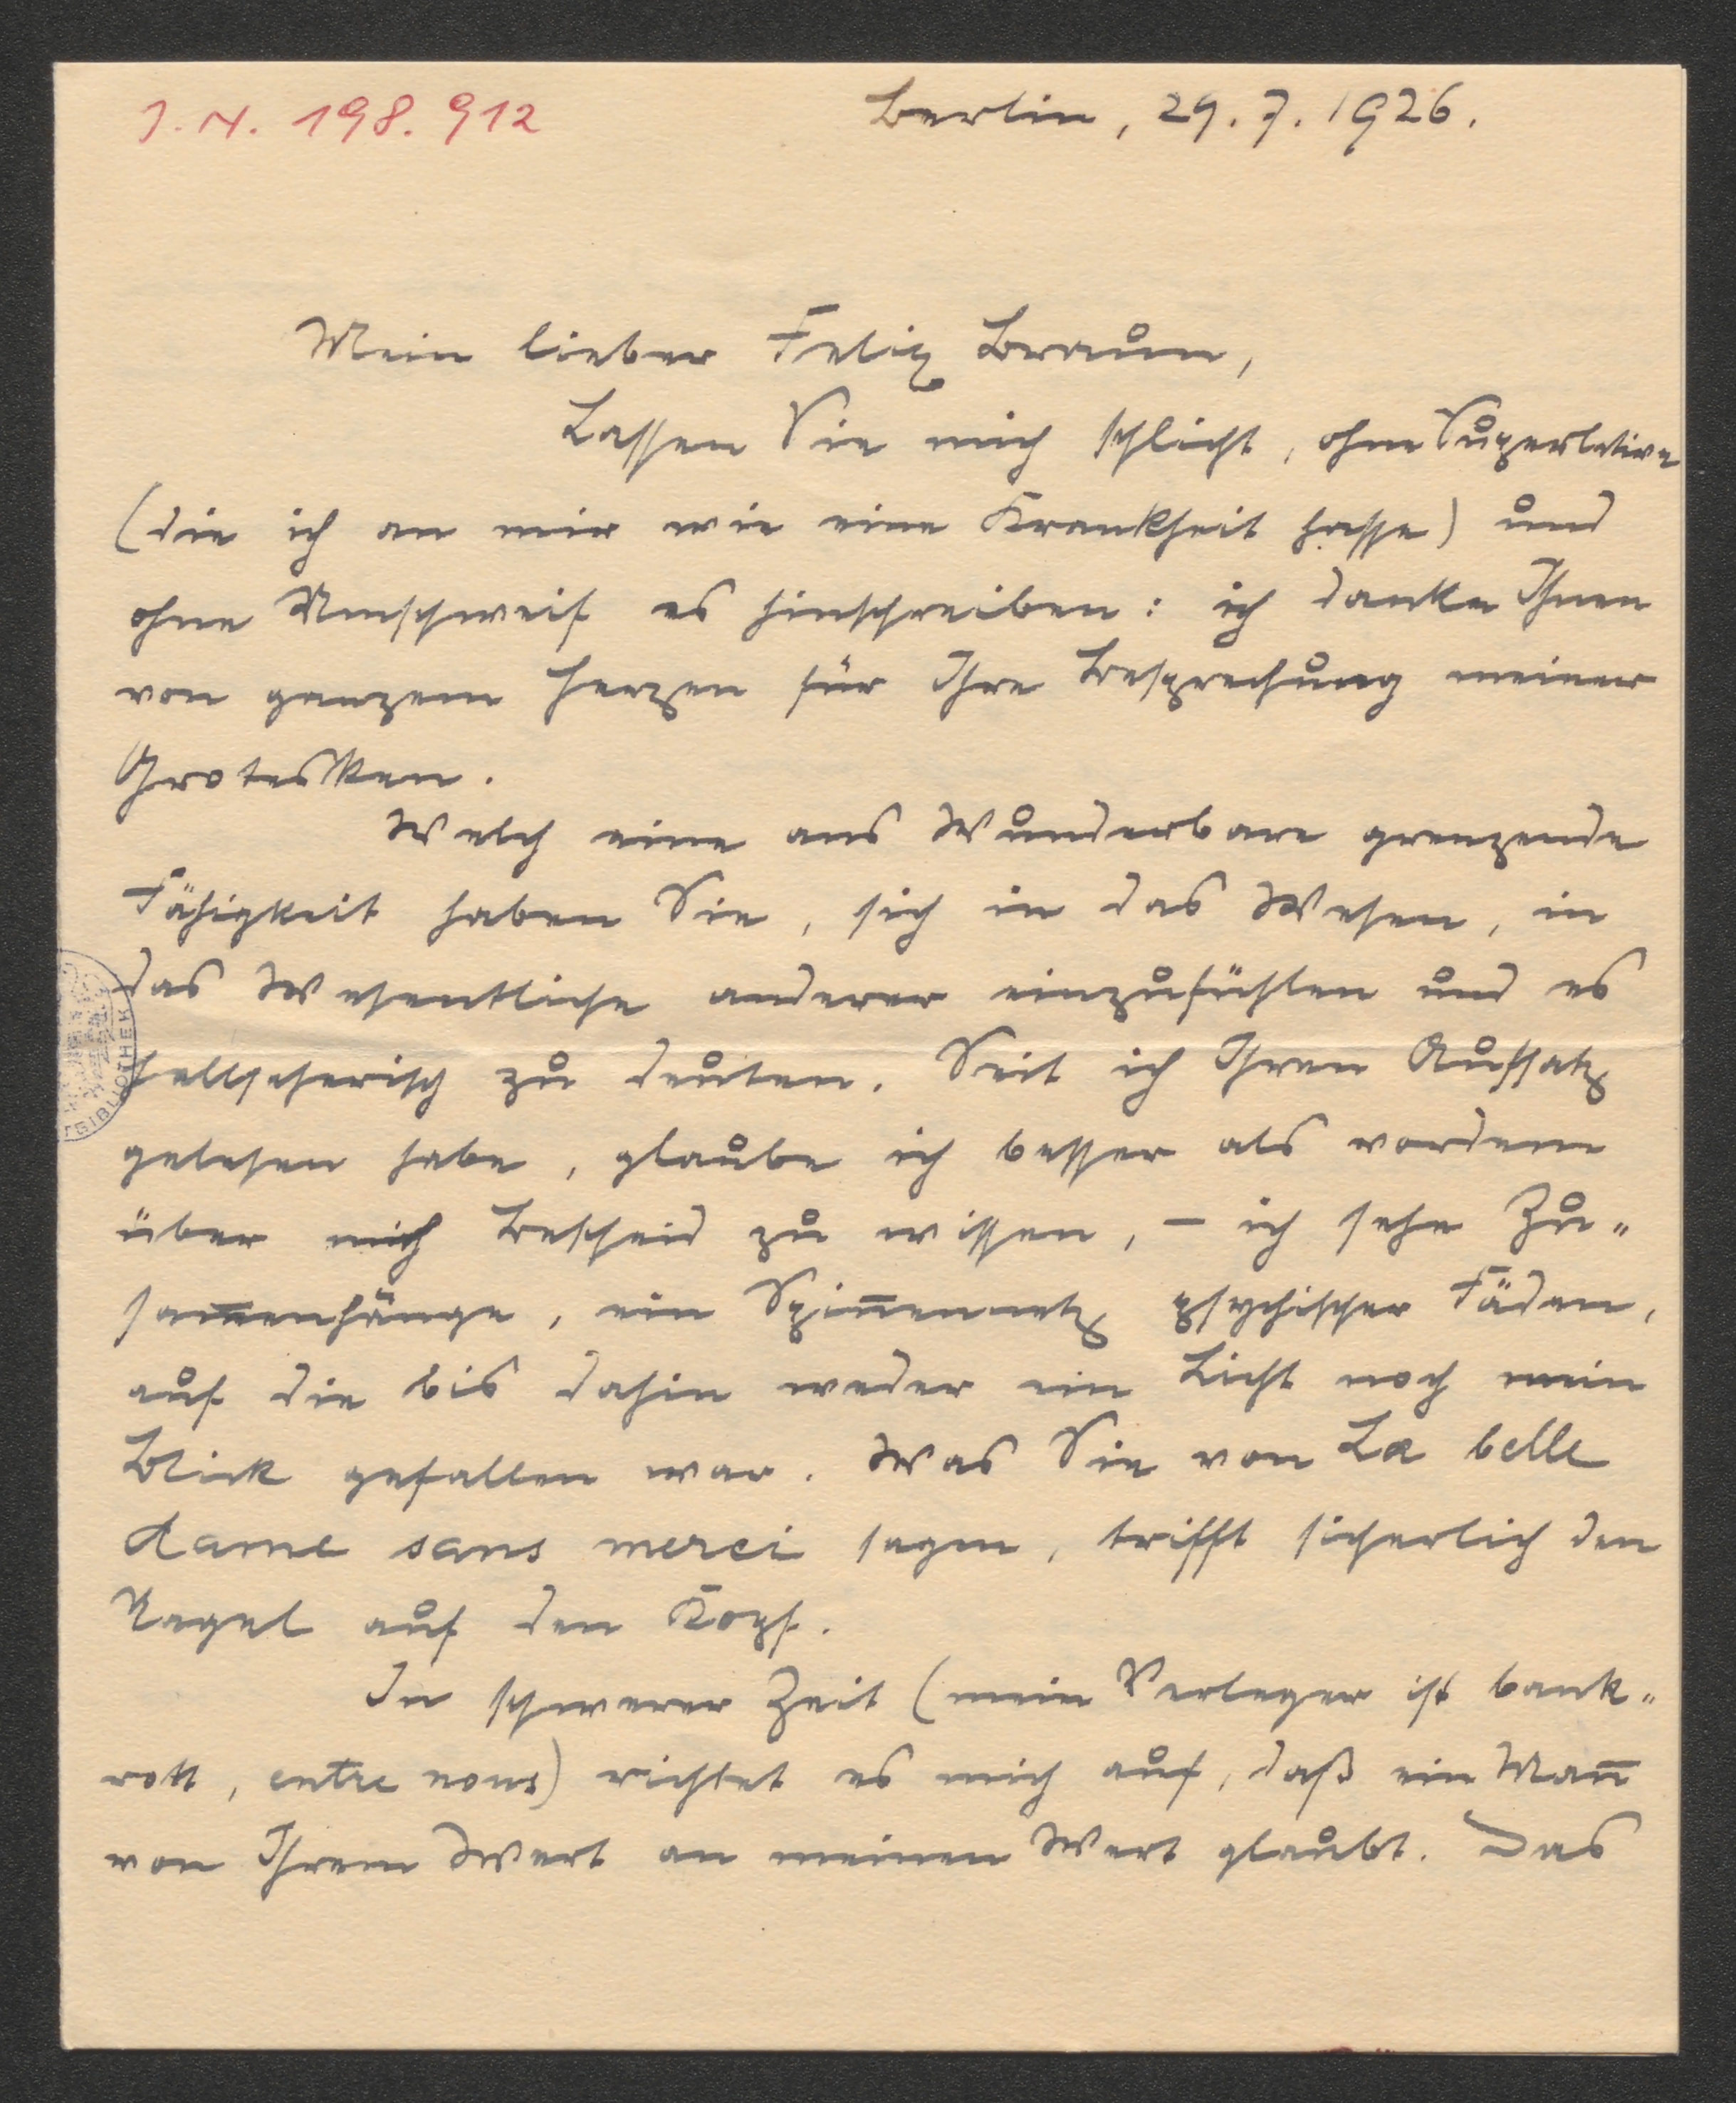 J. N. 198.912
Berlin, 29.7.1926.
Mein lieber Felix Braun,
Lassen Sie mich schlicht, ohne Superlative
(die ich an mir wie eine Krankheit hasse) und
ohne Umschweif es hinschreiben: ich danke Ihnen
von ganzem Herzen für Ihre Besprechung meiner
Grotesken.
Welch eine ans Wunderbare grenzende
Fähigkeit haben Sie, sich in das Wesen, in
das Wesentliche anderer einzufühlen und es
hellseherisch zu deuten. Seit ich Ihren Aufsatz
gelesen habe, glaube ich besser als vordem
über mich Bescheid zu wissen, – ich sehe Zu-
sam̅enhänge, ein Spin̅ennetz psychischer Fäden,
auf die bis dahin weder ein Licht noch mein
Blick gefallen war. Was Sie von La belle
dame sans merci sagen, trifft sicherlich den
Nagel auf den Kopf.
In schwerer Zeit (mein Verleger ist bank-
rott, entre nous) richtet es mich auf, daß ein Man̅
von Ihrem Wert an meinen Wert glaubt. Das
BIBLIOTHEK